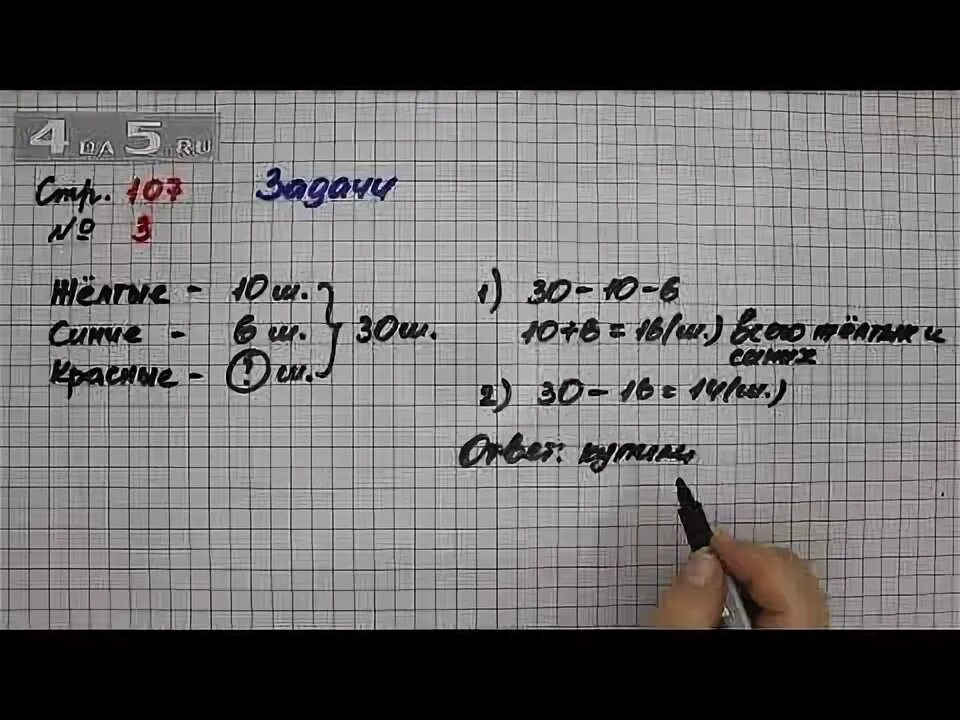 4 НА 5.RU
Стр. 107 Задачи
№ 3
Жёлтые - 10 ш.
Синие - 6 ш. 30 ш.
Красные - ? ш.
1) 30 - 10 - 6
10 + 6 = 16 (ш.) всего жёлтых и
синих
2) 30 - 16 = 14 (ш.)
Ответ: купили